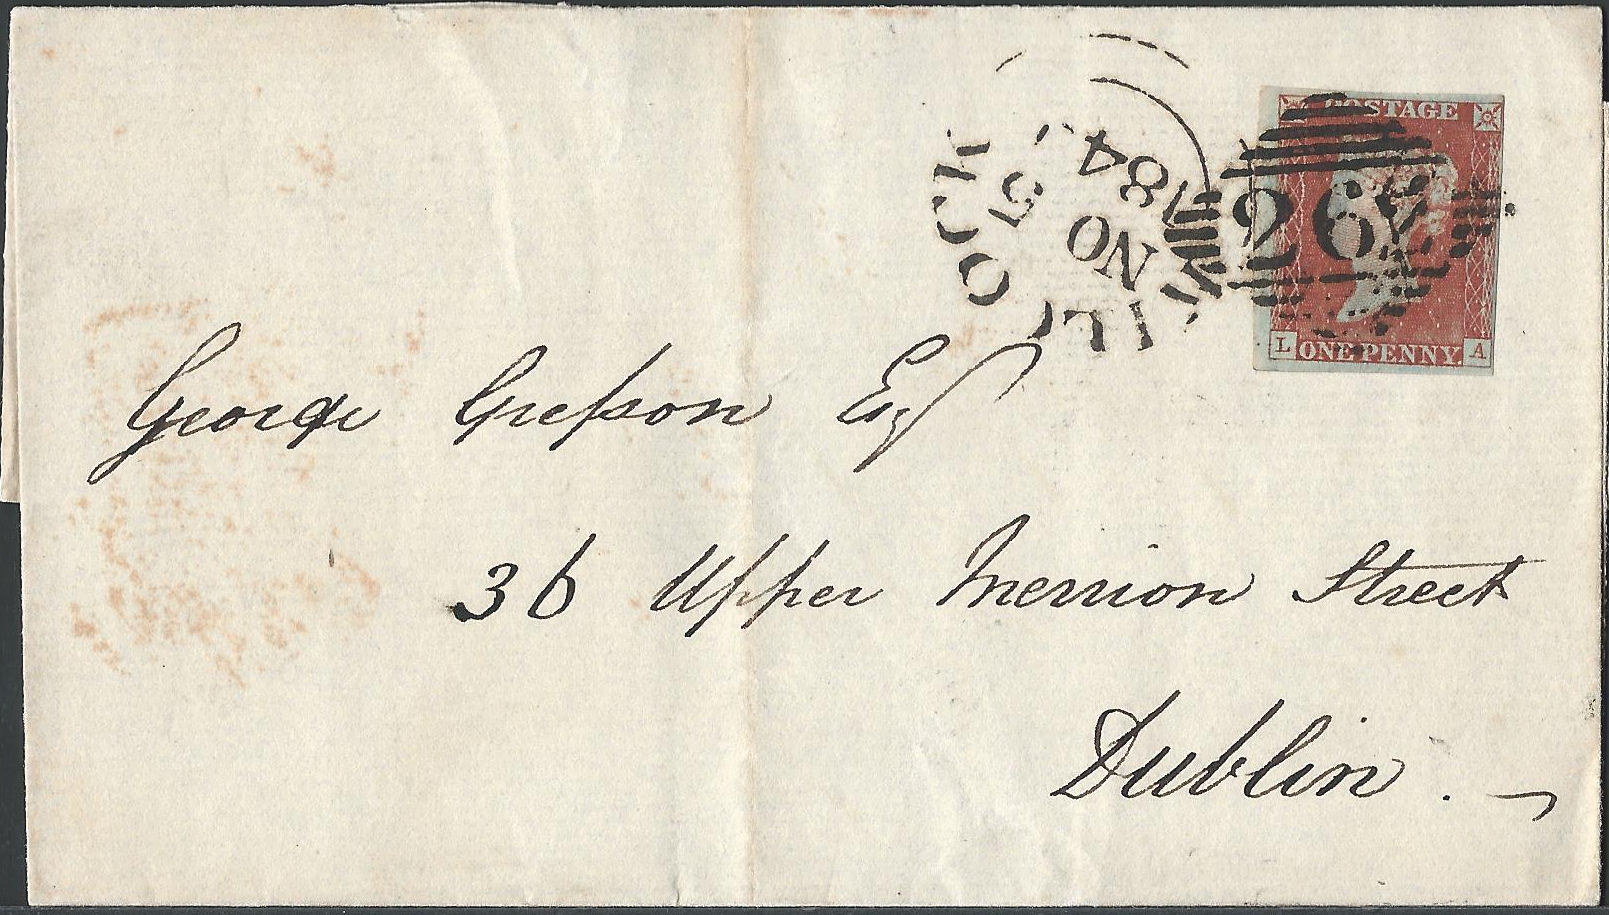 POSTAGE
262
L ONE PENNY A
NO 5
184
George Gresson Esq
36 Upper Merrion Street
Dublin .